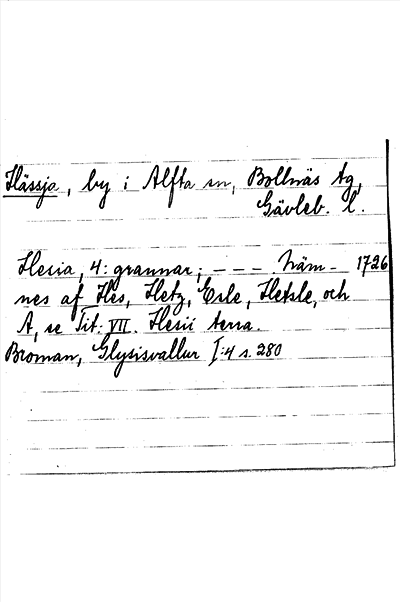 Hässja, by i Alfta sn, Bollnäs tg,
Gävleb. l.
Hesia, 4: grannar; - - - . Näm- 1726
nes af Hes, Hetz, Esle, Hetsle, och
A, se Tit: VII. Hesii terra.
Broman, Glysisvallur I:4 s. 280